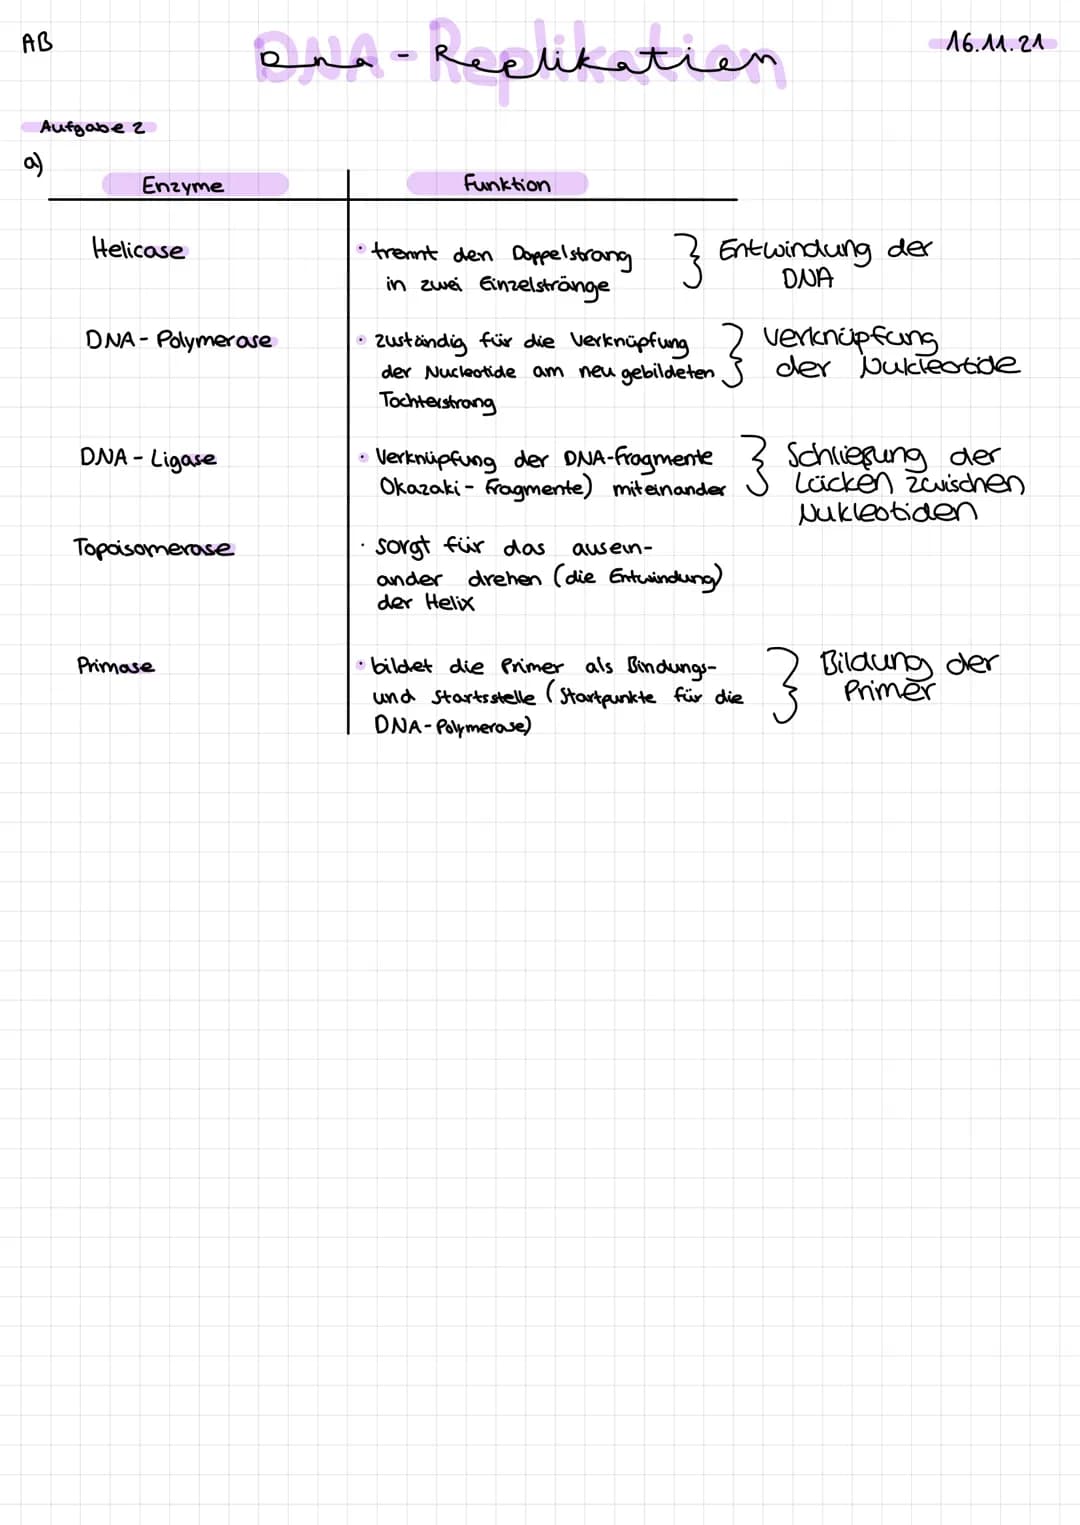 AB
DNA-Replikation
16.11.21
Aufgabe 2
a)
Enzyme
Funktion
Helicase
• trennt den Doppelstrang
in zwei Einzelstränge
} Entwindung der
DNA
DNA-Polymerase
• zuständig für die Verknüpfung
der Nucleotide am neu gebildeten
Tochterstrang
} Verknüpfung
der Nukleotide
DNA-Ligase
• Verknüpfung der DNA-Fragmente
Okazaki-Fragmente) miteinander
} Schließung der
Lücken zwischen
Nukleotiden
Topoisomerase
• sorgt für das ausein-
ander drehen (die Entwindung)
der Helix
Primase
• bildet die Primer als Bindungs-
und Startsstelle (Startpunkte für die
DNA-Polymerase)
} Bildung der
Primer